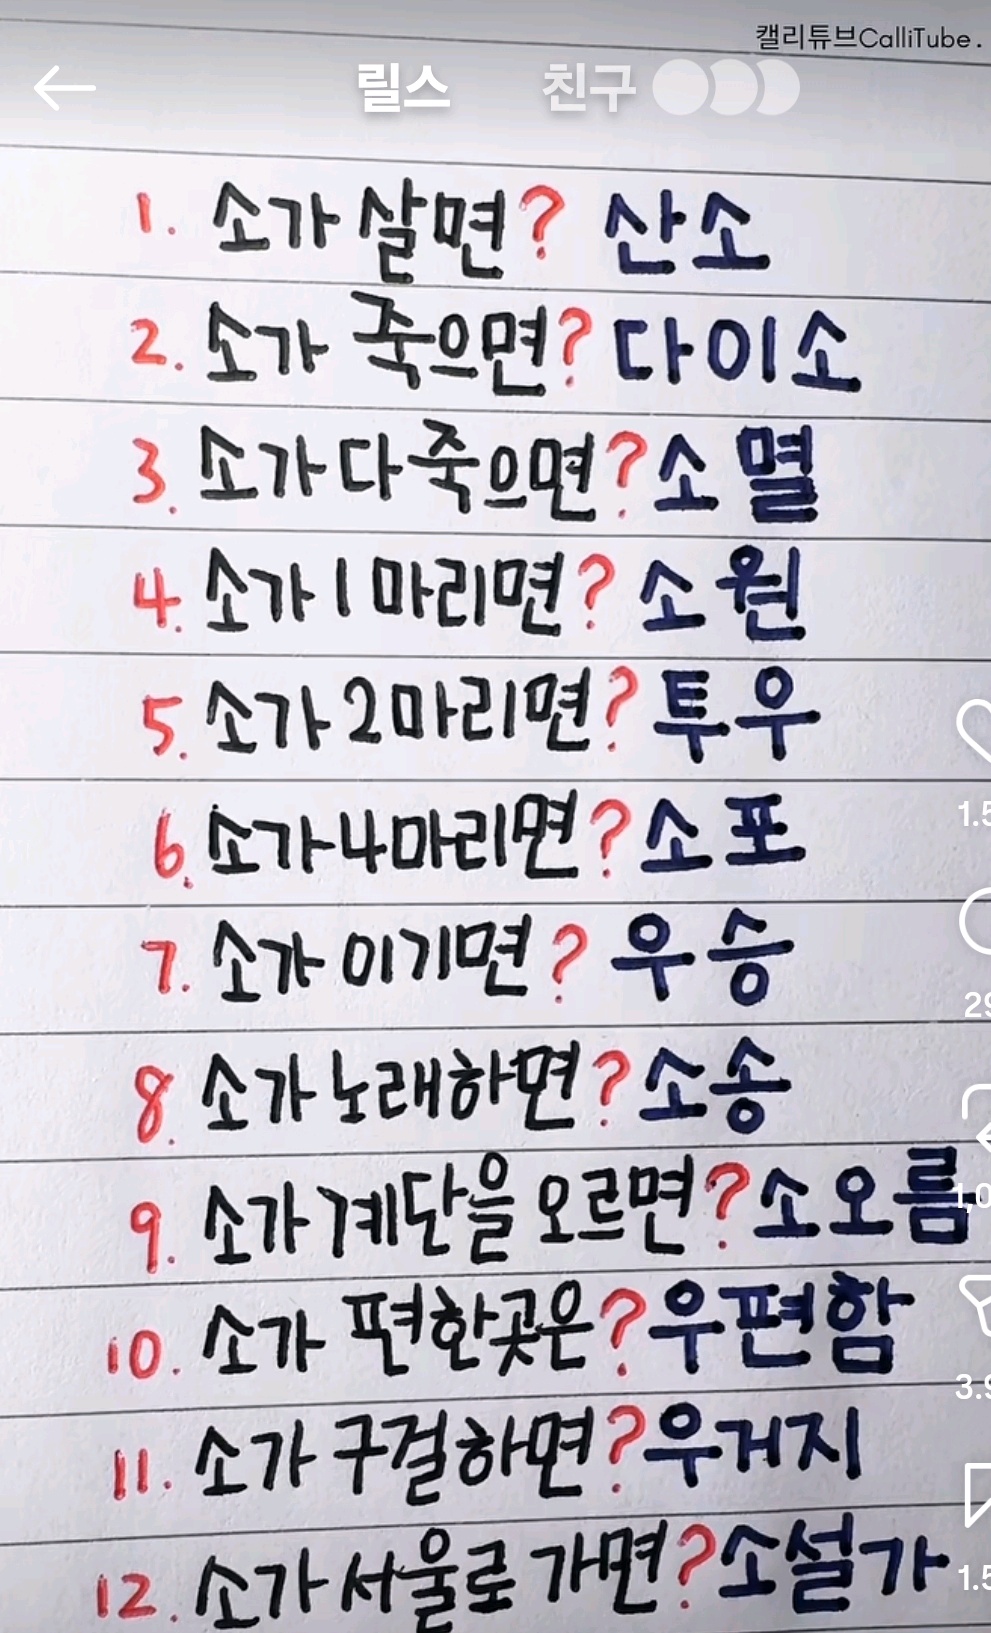 캘리튜브CalliTube.
릴스 친구
1. 소가 살면? 산소
2. 소가 죽으면? 다이소
3. 소가 다 죽으면? 소멸
4. 소가 1마리면? 소원
5. 소가 2마리면? 투우
1.5
6. 소가 4마리면? 소포
7. 소가 이기면? 우승
29
8. 소가 노래하면? 소송
9. 소가 계단을 오르면? 소오름
1,0
10. 소가 편한곳은? 우편함
3.9
11. 소가 구걸하면? 우거지
12. 소가 서울로 가면? 소설가
1.5